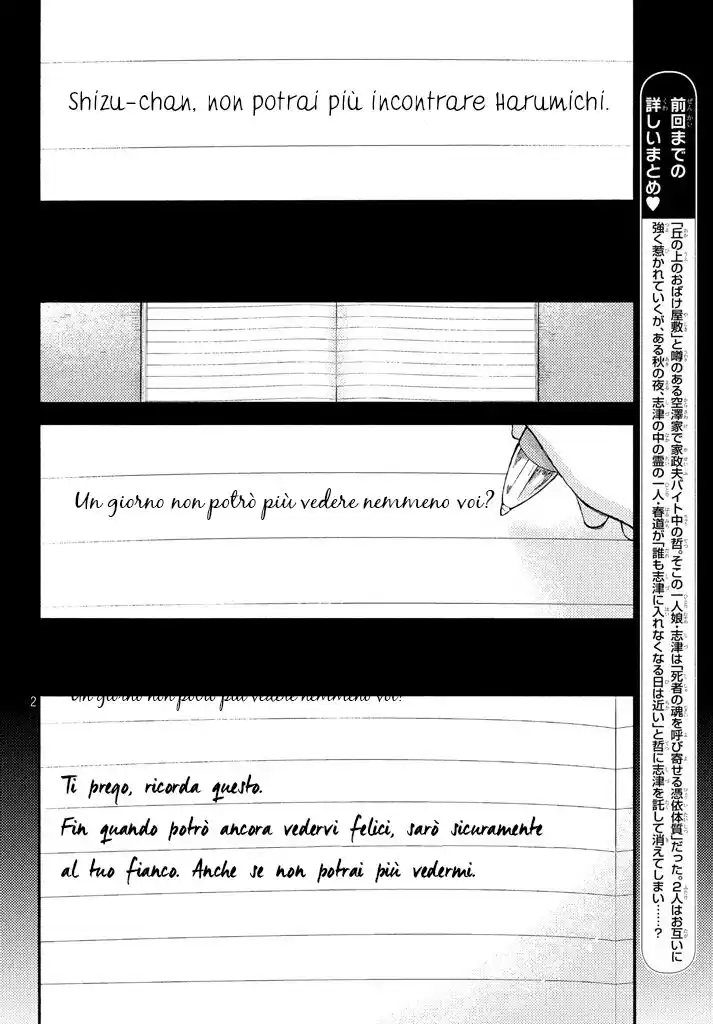 Shizu-chan, non potrai più incontrare Harumichi.
前回までの
詳しいまとめ♥
「丘の上のおばけ屋敷」と噂のある空澤家で家政夫バイト中の哲。そこの一人娘・志津は「死者の魂を呼び寄せる憑依体質」だった。2人はお互いに
強く惹かれていくが、ある秋の夜、志津の中の霊の一人・春道が「誰も志津に入れなくなる日は近い」と哲に志津を託して消えてしまい……?
Un giorno non potrò più vedere nemmeno voi?
Un giorno non potrò più vedere nemmeno voi?
Ti prego, ricorda questo.
Fin quando potrò ancora vedervi felici, sarò sicuramente
al tuo fianco. Anche se non potrai più vedermi.
2